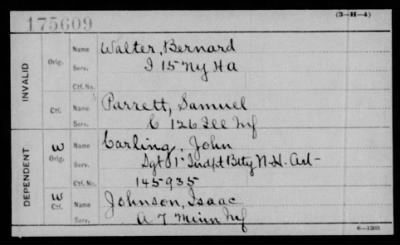 175609
(3-H-4)
INVALID
Orig. Name Walter, Bernard
Serv. I 15 Ny Ha
Ctf. No.
Ctf. Name Parrett, Samuel
Serv. C 126 Ill Inf
DEPENDENT
W Orig. Name Carling, John
Serv. Sgt 1" Indpt Bty N.H. Art
Ctf. No. 145935
W Ctf. Name Johnson, Isaac
Serv. A 7 Minn Inf